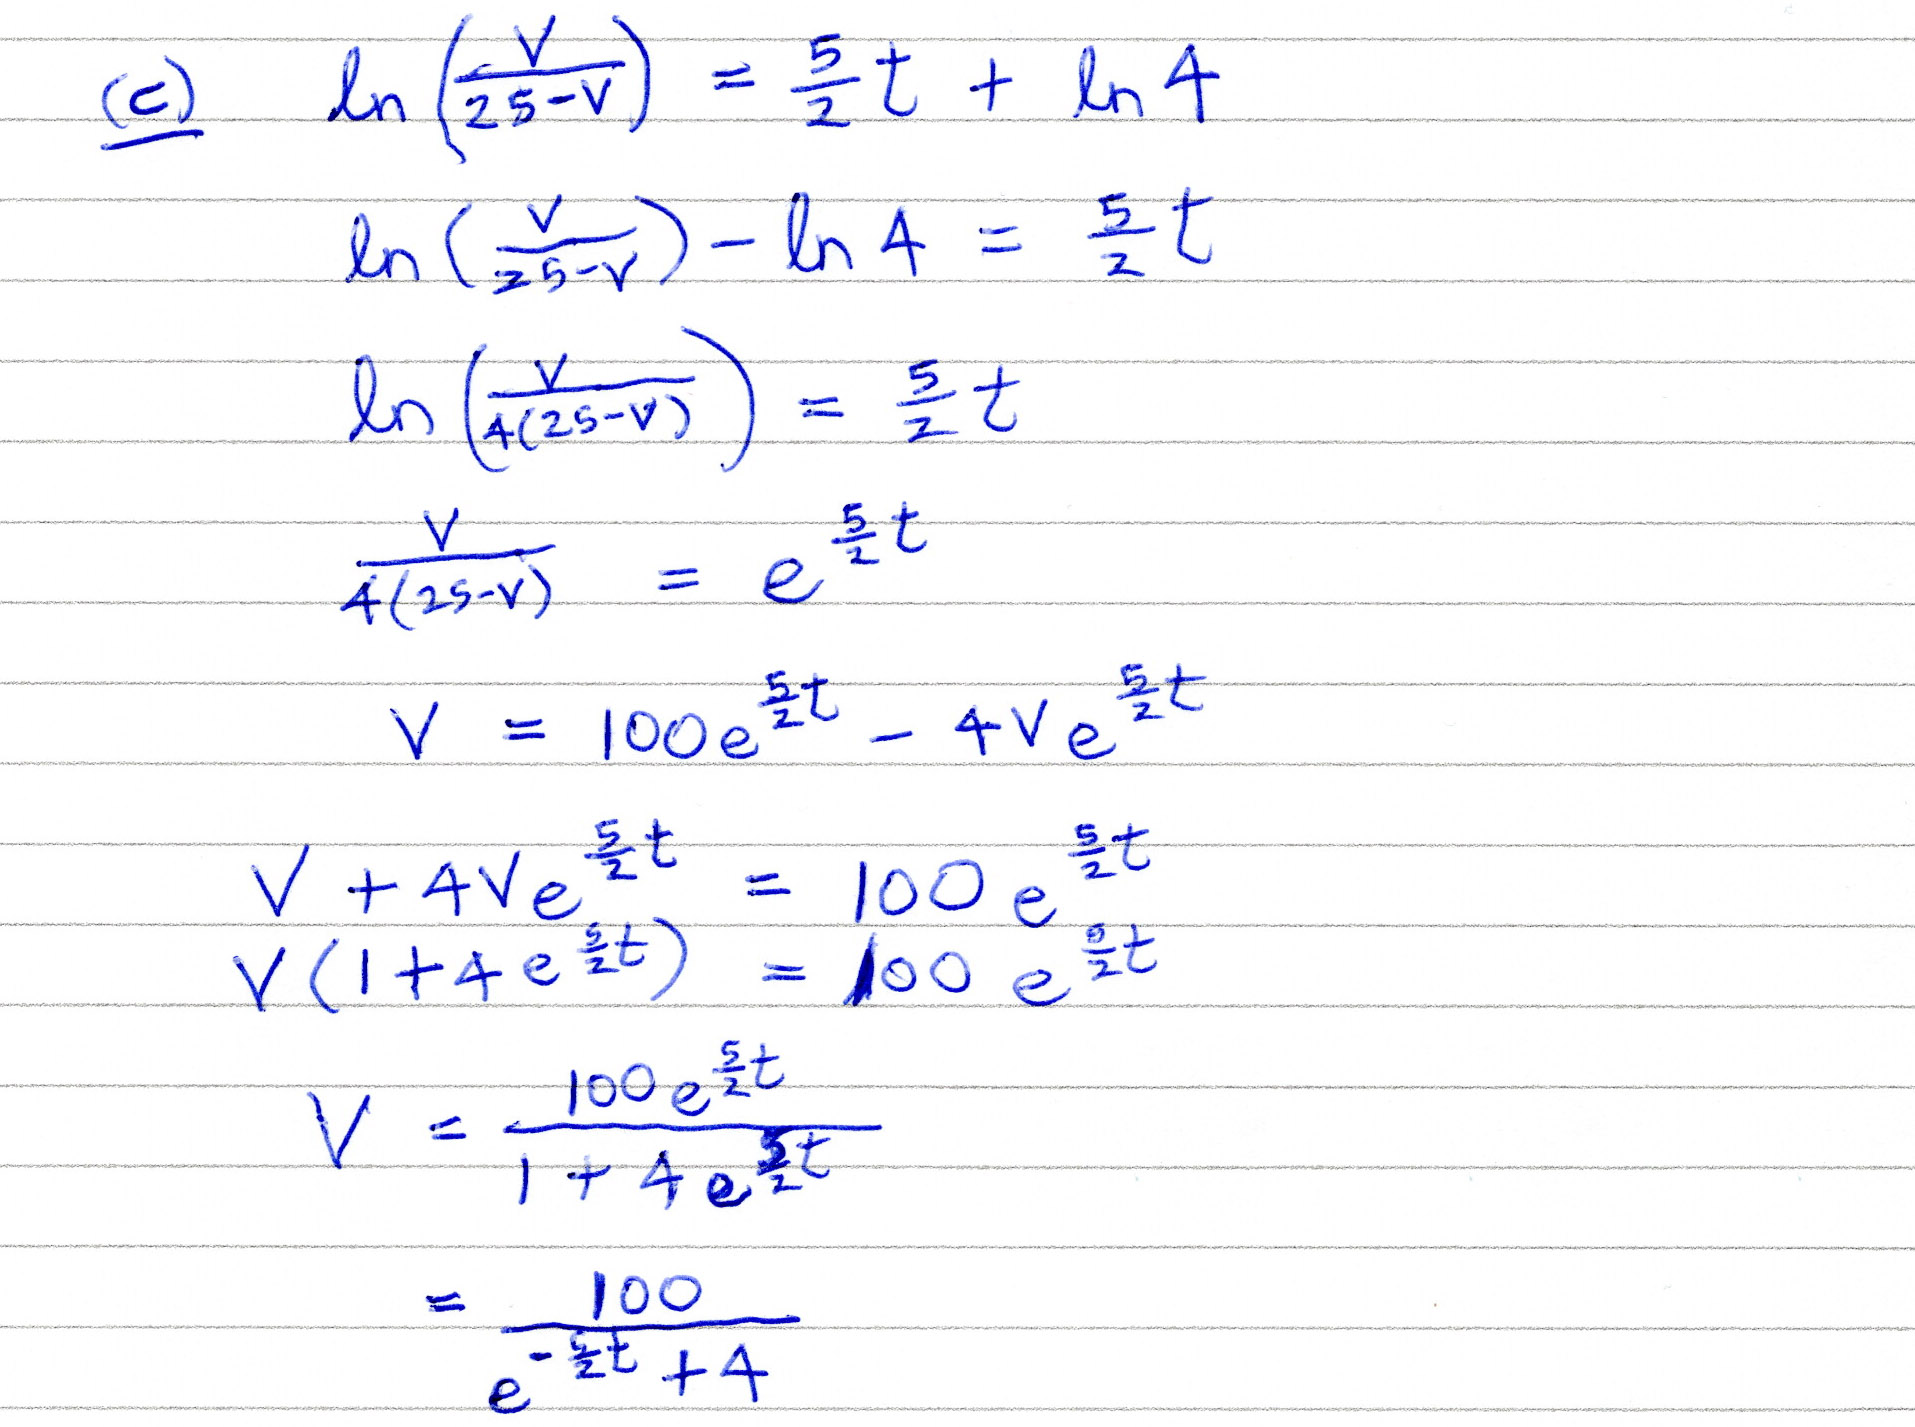 (c) ln (V/(25-V)) = 5/2 t + ln 4
ln (V/(25-V)) - ln 4 = 5/2 t
ln (V/(4(25-V))) = 5/2 t
V/(4(25-V)) = e^(5/2 t)
V = 100e^(5/2 t) - 4Ve^(5/2 t)
V + 4Ve^(5/2 t) = 100 e^(5/2 t)
V(1+4e^(5/2 t)) = 100 e^(5/2 t)
V = 100e^(5/2 t)/(1 + 4e^(5/2 t))
= 100/(e^(-5/2 t) + 4)